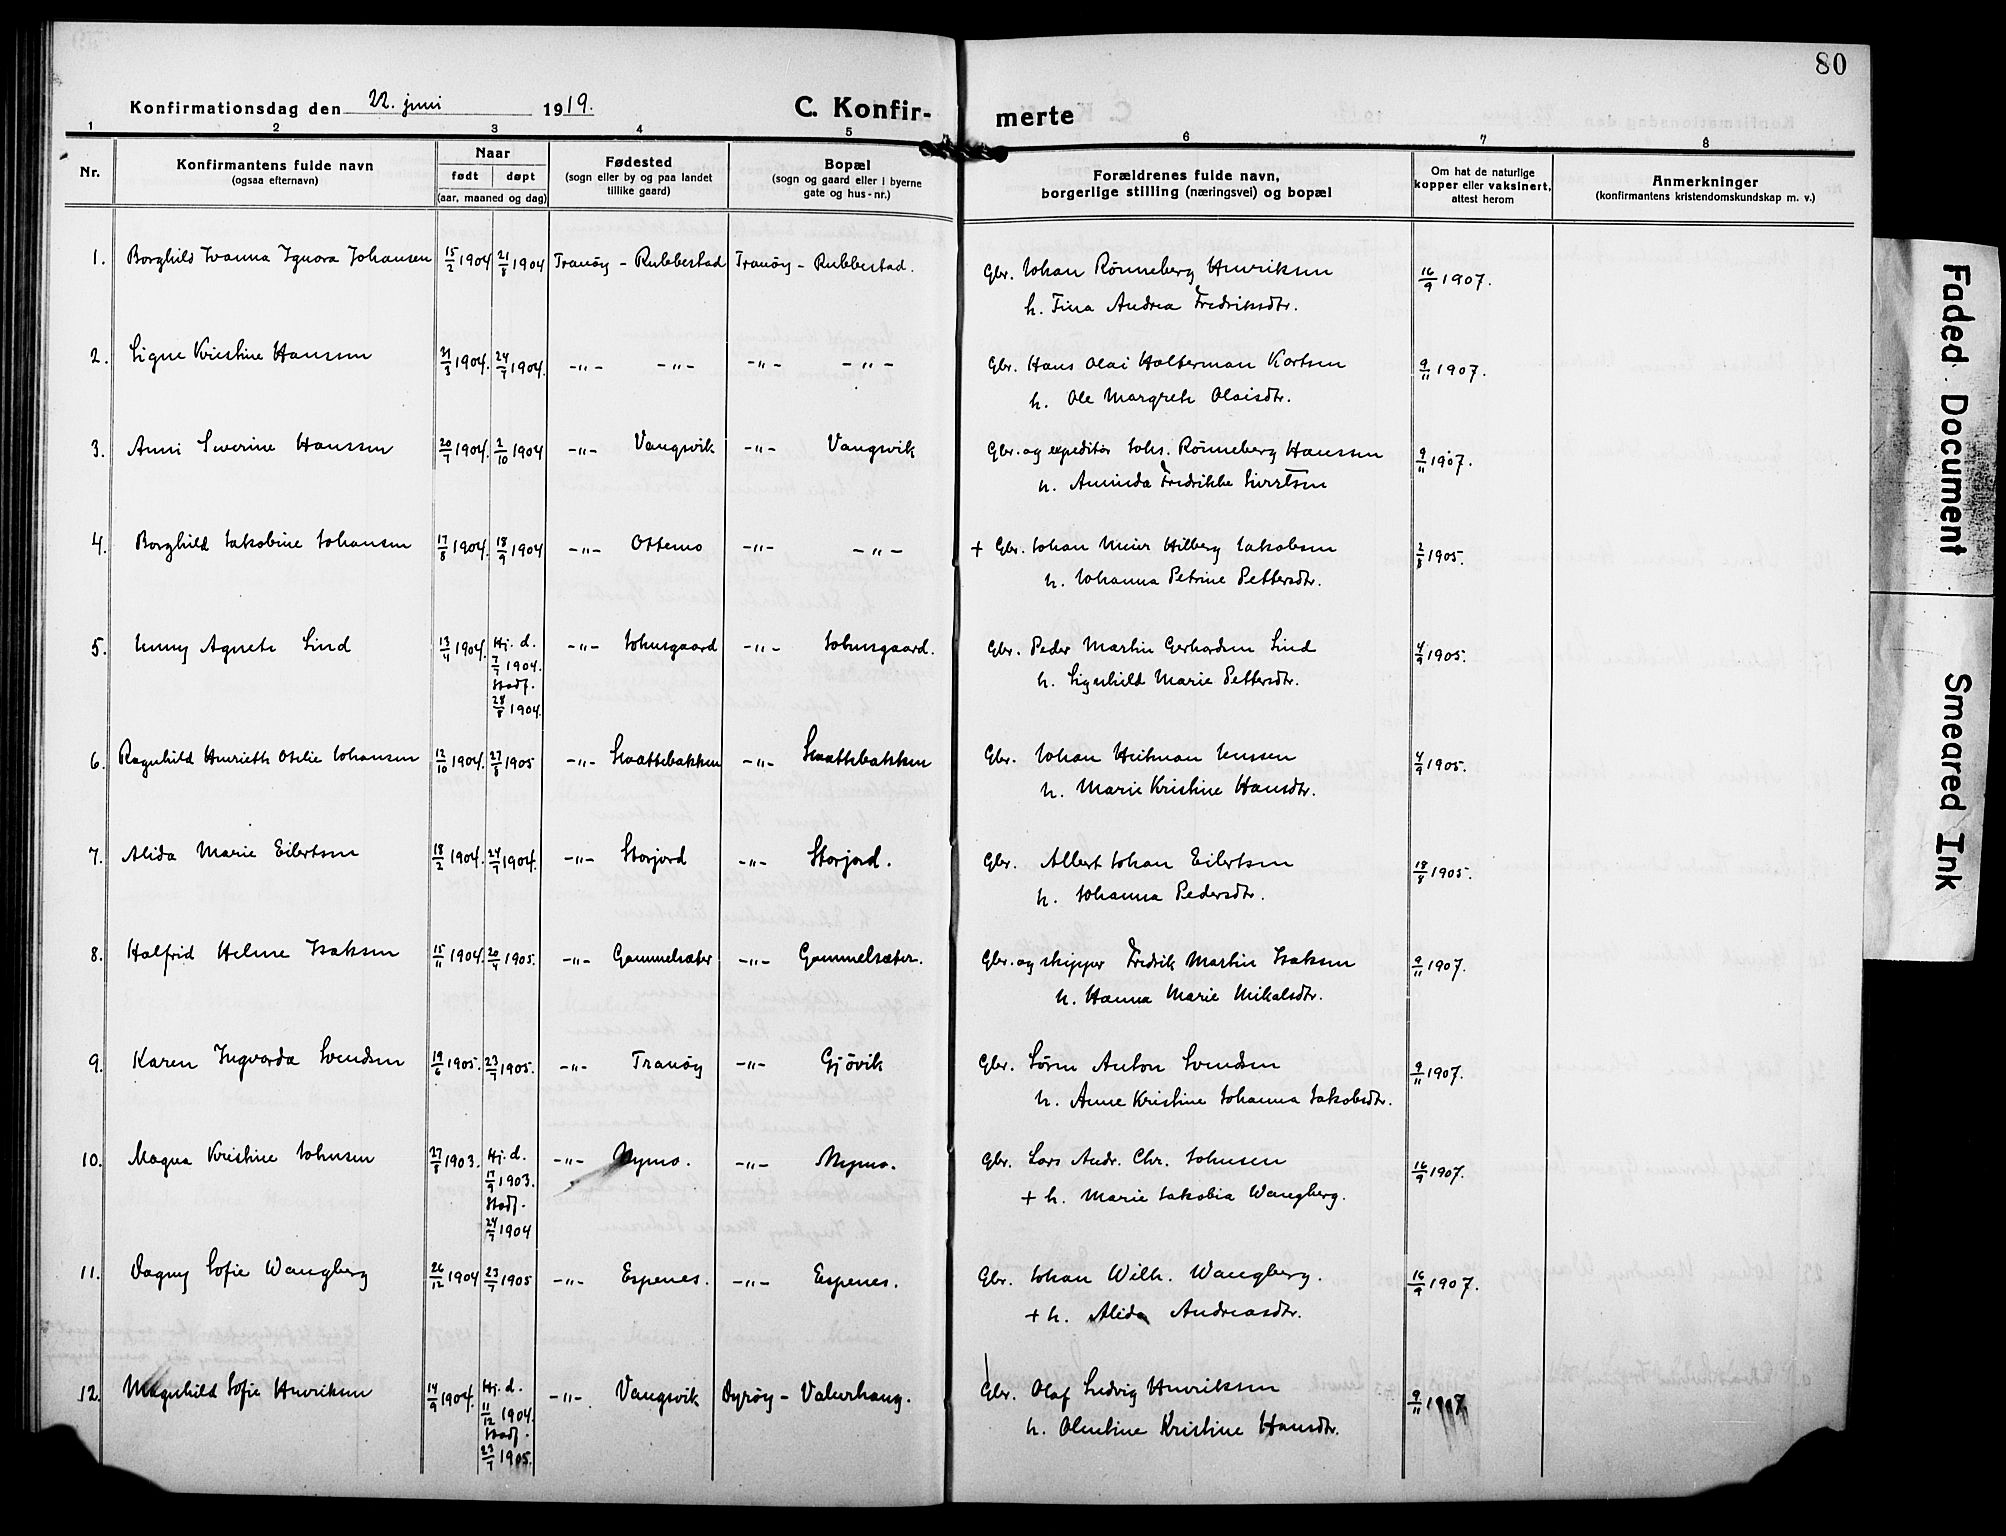 80
Konfirmationsdag den 22. juni 1919. C. Konfirmerte
1 2 3 4 5 6 7 8
Nr.
Konfirmantens fulde navn
(ogsaa efternavn)
Naar
født døpt
(aar, maaned og dag)
Fødested
(sogn eller by og paa landet
tillike gaard)
Bopæl
(sogn og gaard eller i byerne
gate og hus-nr.)
Forældrenes fulde navn,
borgerlige stilling (næringsvei) og bopæl
Om hat de naturlige
kopper eller vaksinert,
attest herom
Anmerkninger
(konfirmantens kristendomskundskap m. v.)
1. Borghild Ivanna Ignora Johansen 15/2 1904 21/8 1904 Tranöy - Rubbestad Tranöy - Rubbestad. Gbr. Johan Rönneberg Henriksen 16/9 1907.
h. Tina Andrea Fredriksdtr.
2. Signe Kristine Hanssen 21/3 1904. 24/7 1904. -"- -"- -"- -"- Gbr. Hans Olai Halterman Kortsen 9/11 1907.
h. Ole Margreth Olaisdtr.
3. Anni Severine Hanssen 20/7 1904. 2/10 1904 -"- Vangsvik -"- Vangsvik Gbr. og expeditör Johs. Rönneberg Hanssen 9/11 1907.
h. Aminda Fredrikke Sivertsen
4. Borghild Jakobine Johansen 17/8 1904 18/9 1904 -"- Ottemo -"- -"- + Gbr. Johan Meier Hilberg Jakobsen 2/8 1905.
h. Johanna Petrine Pettersdtr.
5. Jenny Agnete Lind 13/4 1904. Hj. d. -"- Johnsgaard -"- Johnsgaard. Gbr. Peder Martin Gerhardsen Lind 4/9 1905.
7/7 1904. h. Signhild Marie Pettersdtr.
Stadf.
28/8 1904.
6. Ragnhild Henriette Otelie Johansen 12/10 1904. 27/8 1905 -"- Skattebakken -"- Skattebakken Gbr. Johan Heitman Jenssen 4/9 1905.
h. Marie Kristine Hansdtr.
7. Alida Marie Eilertsen 18/2 1904. 24/7 1904. -"- Storjord -"- Storjord. Gbr. Albert Johan Eilertsen 18/8 1905.
h. Johanna Pedersdtr.
8. Halfrid Helene Isaksen 15/11 1904. 20/4 1905. -"- Gammelsæter -"- Gammelsæter. Gbr. og skipper Fredrik Martin Isaksen 9/11 1907.
h. Hanna Marie Mikalsdtr.
9. Karen Ingvarda Svendsen 19/6 1905. 23/7 1905. -"- Tranöy -"- Gjövik Gbr. Sören Anton Svendsen 9/11 1907.
h. Anne Kristine Johanna Jakobsdtr.
10. Magna Kristine Johnsen 27/8 1903. Hj. d. -"- Nymo. -"- Nymo. Gbr. Lars Andr. Chr. Johnsen 16/9 1907.
17/9 1903. + h. Marie Jakobia Wangberg.
Stadf.
24/7 1904
11. Dagny Sofie Wangberg 26/12 1904 23/7 1905 -"- Espenes. -"- Espenes. Gbr. Johan Wilh. Wangberg. 16/9 1907.
+ h. Alida Andreasdtr.
12. Magnhild Sofie Henriksen 14/9 1904. Hj. d. -"- Vangsvik Dyröy - Valerhaug. Gbr. Olaf Ludvig Henriksen 9/11 1907
11/12 1904. h. Olentine Kristine Hansdtr.
Stadf.
23/7 1905.
Faded Document Smeared Ink